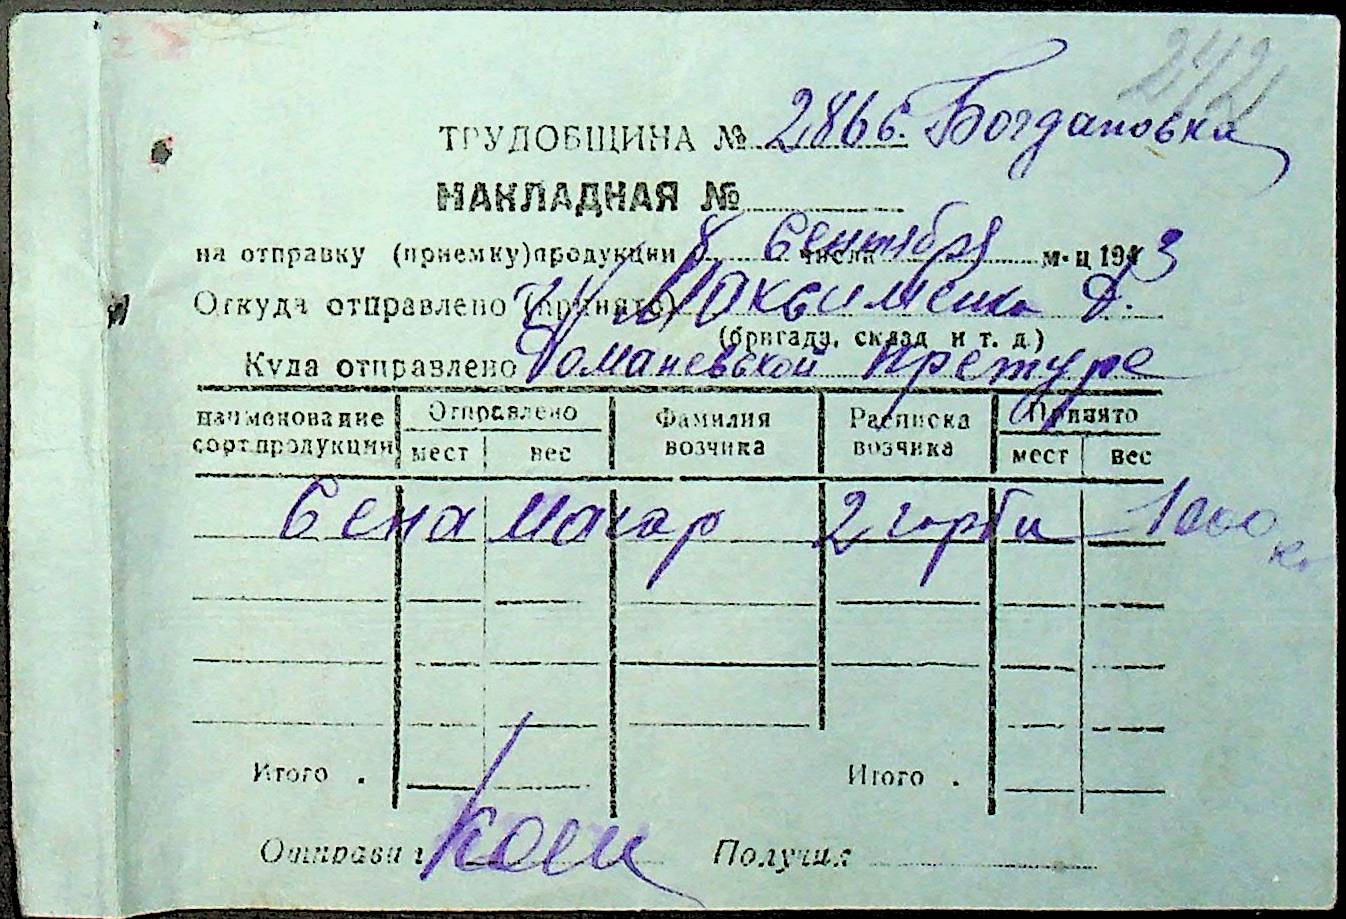 242
ТРУДОБЩИНА № 286 с. Богдановка
НАКЛАДНАЯ №
на отправку (приемку) продукции 8 числа Сентября м-ц 1943
Откуда отправлено (принято) Максименко
(бригада, склад и т. д.)
Куда отправлено Доманевской претуре
наименование сорт.продукции Отправлено Фамилия возчика Расписка возчика Принято
мест вес мест вес
Сена Магар 2 гарби – 1000 кг
Итого . Итого .
Отправил Получил